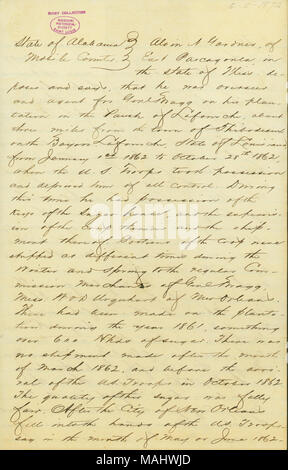 BIXBY COLLECTION
State of Alabama } Alvin N Gardner, of
Mobile County } East Pascagoula, in
the State of Miss. de-
poses and said, that he was overseer
and agent for Genl Bragg on his plan-
tation in the Parish of Lafourch, about
three miles from the town of Thibodeaux
on the Bayou Lafourch, State of Louisiana
from January 1st 1862 to October 28th 1862,
when the U S Troops took possession
and deprived him of all control. During
this time he had possession of the
keys of the Sugar house, and the supervision
of the Crop made and the ship-
ment thereof. Portions of the Crop were
shipped at different times during the
Winter and Spring to the regular Com-
mission Merchants of Genl Bragg,
Mess. W & D Urquhart of New Orleans.
There had been made on the planta-
tion during the year 1861, something
over 600 Hhds of sugar. There was
no shipment made after the month
of March 1862, and before the arri-
val of the US Troops in October 1862
The quality of this sugar was fully
fair. After the City of New Orleans
fell into the hands of the US Troops
say in the month of May or June 1862
alamy
Image ID: MAHWJD
www.alamy.com